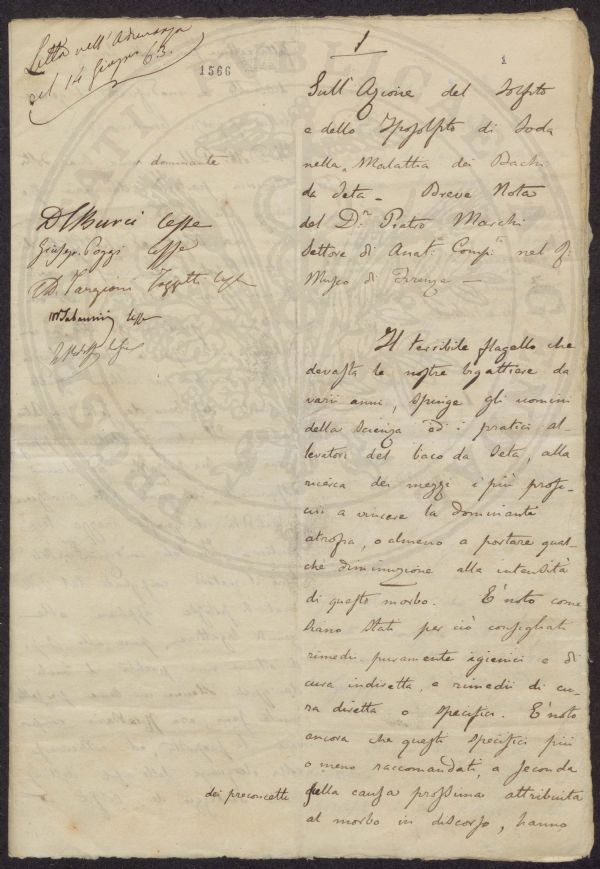 Letta nell'Adunanza
del 14 Giugno 63.
1566
1
1
Sull'Azione del Solfito
e dello Iposolfito di Soda
nella Malattia dei Bachi
da Seta – Breve Nota
del D.r Pietro Marchi
Settore di Anat. Comp. nel R.
Museo di Firenze –
dominante
D C Burci lesse
Giusep. Poggi lesse
A. Targioni Tozzetti lesse
lesse
Il terribile flagello che
devasta le nostre bigattiere da
varii anni, spinge gli uomini
della scienza ed i pratici al-
levatori del baco da seta, alla
ricerca dei mezzi i più profi-
cui a vincere la dominante
atrofia, o almeno a portare qual-
che diminuzione alla intensità
di questo morbo. È noto come
siano stati per ciò consigliati
rimedii puramente igienici e di
cura indiretta, e rimedii di cu-
ra diretta o specifici. È noto
ancora che questi specifici più
o meno raccomandati, a seconda
dei preconcetti
sulla causa prossima attribuita
al morbo in discorso, hanno